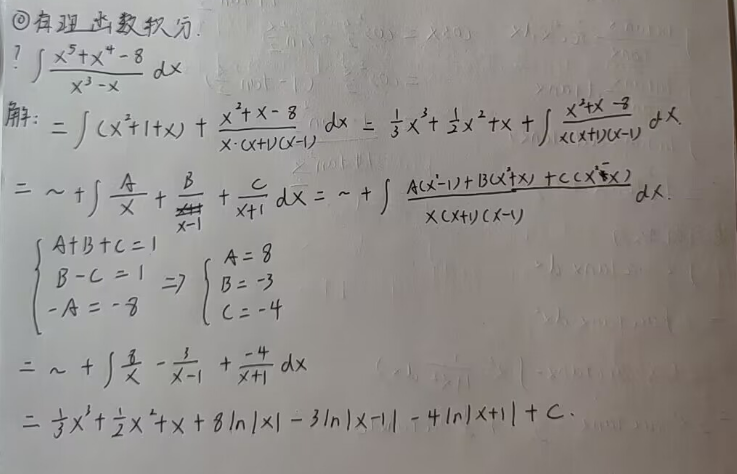 ◎有理函数积分.
? ∫ (x⁵+x⁴-8)/(x³-x) dx
解: = ∫(x²+1+x) + (x²+x-8)/(x·(x+1)(x-1)) dx = 1/3 x³ + 1/2 x² + x + ∫ (x²+x-8)/(x(x+1)(x-1)) dx.
= ~ + ∫ A/x + B/(x-1) + C/(x+1) dx = ~ + ∫ (A(x²-1)+B(x²+x)+C(x²-x))/(x(x+1)(x-1)) dx.
{ A+B+C=1
B-C=1 ⇒ { A=8
-A=-8 B=-3
C=-4
= ~ + ∫ 8/x - 3/(x-1) + -4/(x+1) dx
= 1/3 x³ + 1/2 x² + x + 8ln|x| - 3ln|x-1| - 4ln|x+1| + C.